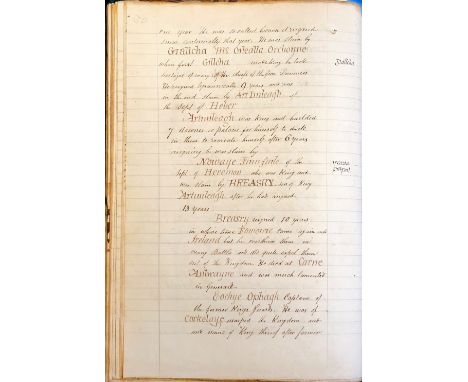 one year he was so called because it rained
snow continually that year. He was slain by
Grallcha Ms Orealla Orchonne
when first Gillcha
hostages of many of the chiefs of the four Provinces
He reigned 9 years and was
in the end slain by Artimleagh of
the Sept of Heber
Artimleagh was King and builded
7 downes or palaces for himself to dwell
in them to recreate himself after 6 years
reigning he was slain by
Nowaye Finnfaile of the
Sept of Heremon who was King and
was slain by BREASRY son of King
Artimleagh after he had reigned
13 years
Breasry reigned 10 years
in whose time Fomoraie came again into
Ireland but he overthrew them in
many Battles and did quite expel them
out of the Kingdom. He died at Carne
Conlwayne and was much lamented
in general
Eochye Ophagh Captain of
the former Kings forces. He was of
Corkelaye usurped the Kingdom and
name of King thereof after former